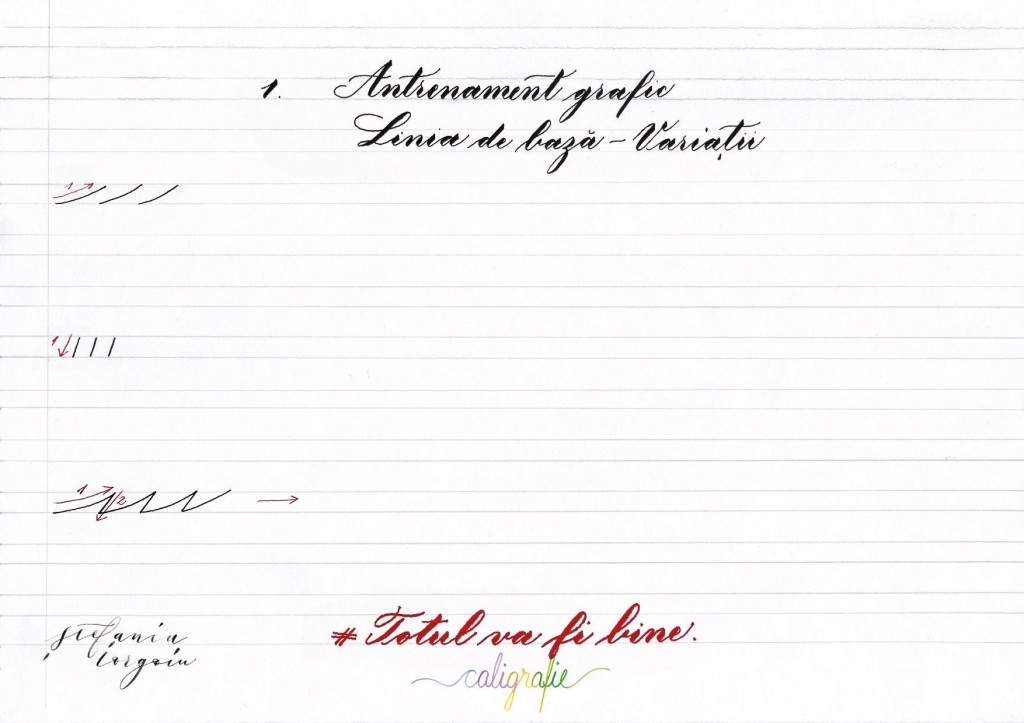 1. Antrenament grafic
Linia de bază - Variații
1
1
1 2
Ștefania
Iorgoiu
# Totul va fi bine.
caligrafie